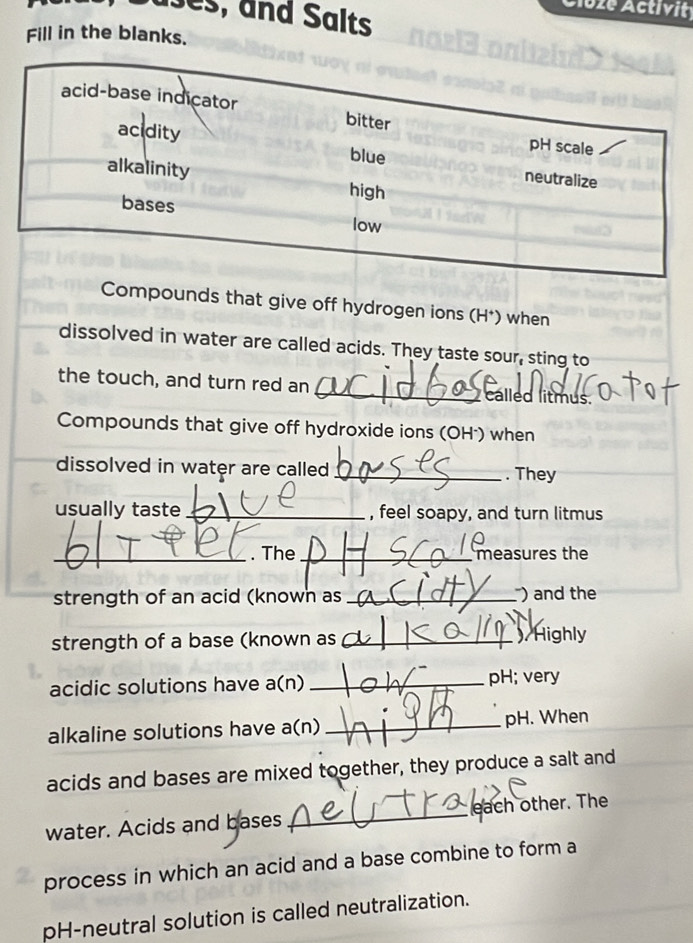 and Salts
Cloze Activity
Fill in the blanks.
acid-base indicator
acidity
alkalinity
bases
bitter
blue
high
low
pH scale
neutralize
Compounds that give off hydrogen ions (H⁺) when
dissolved in water are called acids. They taste sour, sting to
the touch, and turn red an acid base indicator called litmus.
Compounds that give off hydroxide ions (OH⁻) when
dissolved in water are called bases. They
usually taste blue, feel soapy, and turn litmus
bitter. The pH scale measures the
strength of an acid (known as acidity) and the
strength of a base (known as ). Highly
acidic solutions have a(n) low pH; very
alkaline solutions have a(n) high pH. When
acids and bases are mixed together, they produce a salt and
water. Acids and bases neutralize each other. The
process in which an acid and a base combine to form a
pH-neutral solution is called neutralization.